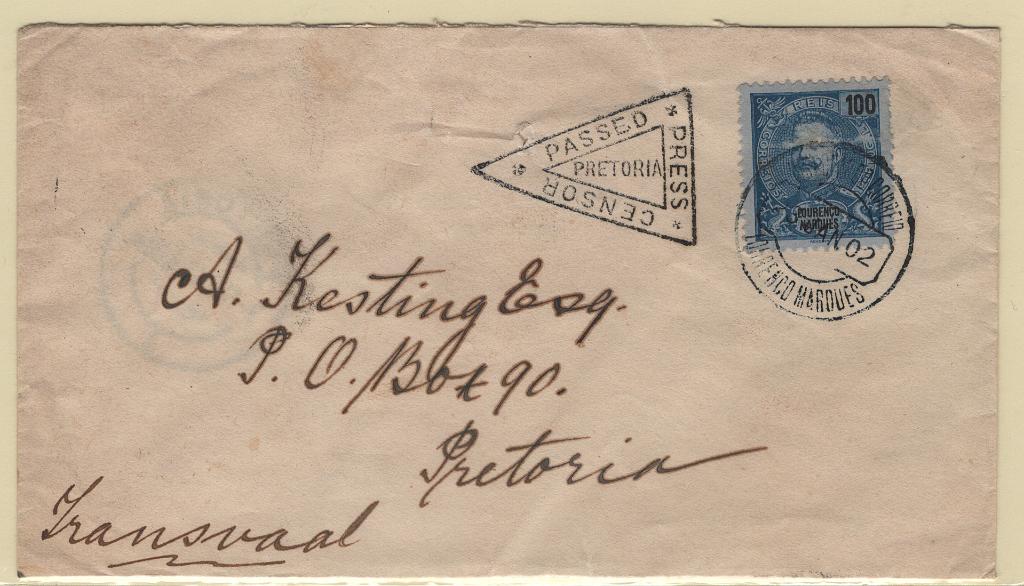 PASSED
PRESS
CENSOR
PRETORIA
REIS
100
LOURENÇO
MARQUES
CORREIO
02
LOURENÇO MARQUES
A. Kesting Esq.
P. O. Box 90.
Pretoria
Transvaal